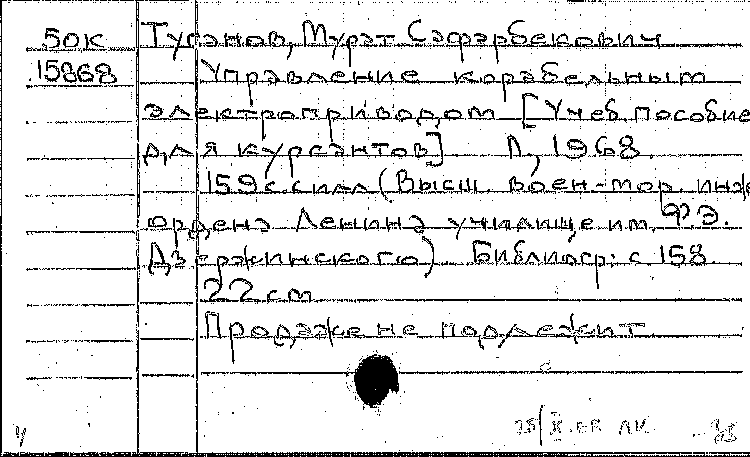 50к Туганов, Мурат Сафарбекович
15868 Управление корабельным
электроприводом [Учеб. пособие
для курсантов]. Л., 1968.
159 с. с илл (Высш. воен-мор. инже
ордена Ленина училище им. Ф.Э.
Дзержинского) Библиогр: с 158
22 см
Продаже не подлежит